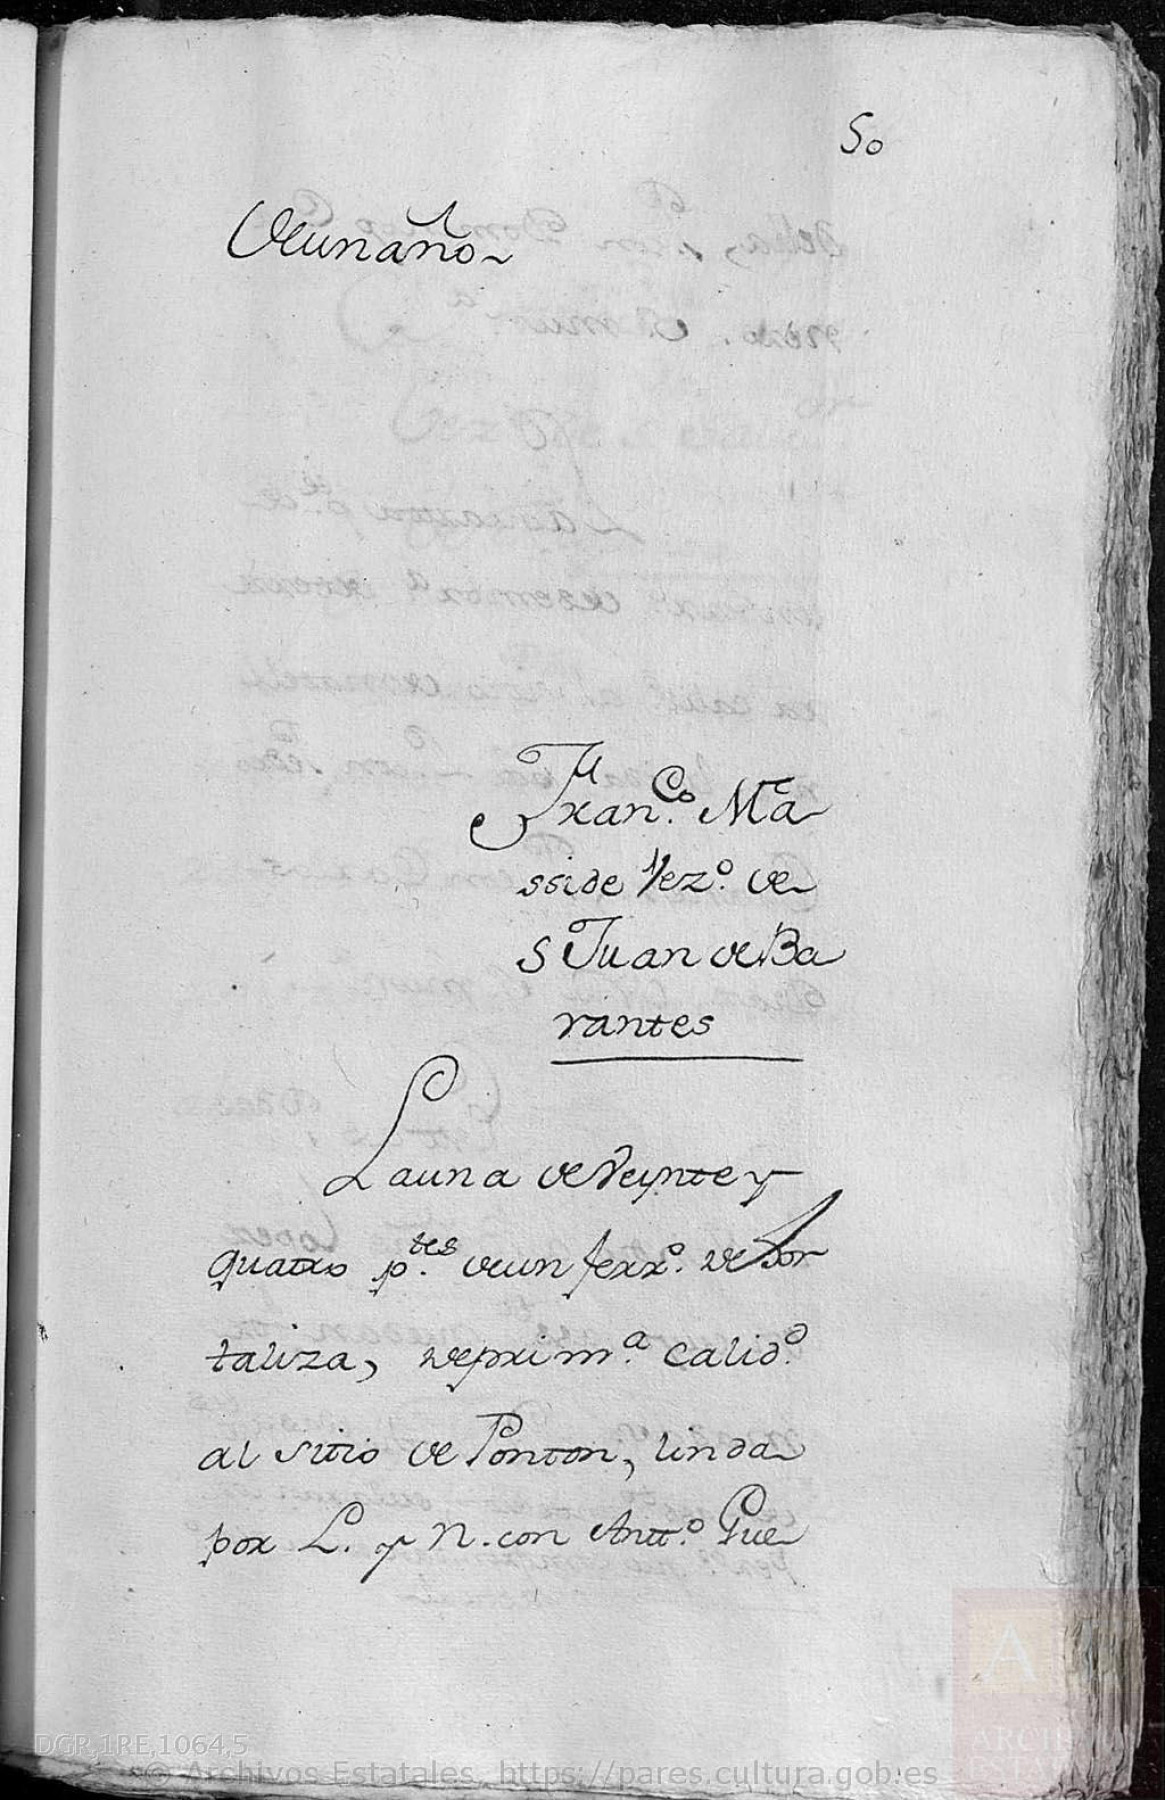 50
de un año
Fran.co Ma
sside Vez.o de
S Juan de Ba
rantes
La una de Veynte y
quatro p.tes de un ferr.o de hor
taliza, de prim.a calid.d
al sitio de Ponton, linda
por L. y N. con Antt.o Gue
DGR,1RE,1064,5
© Archivos Estatales, https://pares.cultura.gob.es